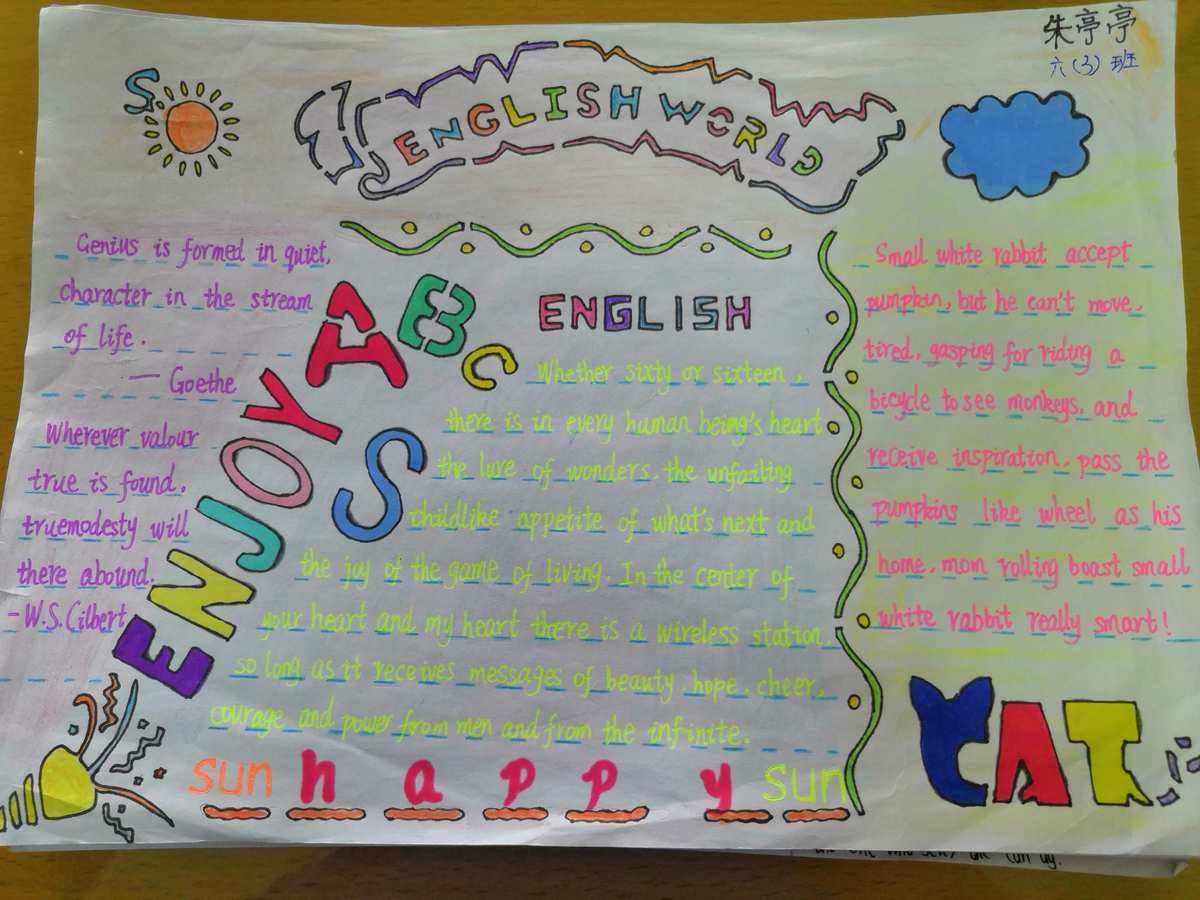 朱亭亭
六(3)班
S
ENGLISH WORLD
Genius is formed in quiet,
character in the stream
of life.
— Goethe
Wherever valour
true is found,
truemodesty will
there abound.
-W.S.Cilbert
ENJOY
ABC
S
ENGLISH
Whether sixty or sixteen,
there is in every human being's heart
the lure of wonders. the unfailing
childlike appetite of what's next and
the joy of the game of living. In the center of
your heart and my heart there is a wireless station.
so long as it receives messages of beauty. hope. cheer,
courage and power from men and from the infinite.
Small white rabbit accept
pumpkin, but he can't move.
tired, gasping for riding a
bicycle to see monkeys, and
receive inspiration, pass the
pumpkins like wheel as his
home, mom rolling boast small
white rabbit really smart!
sun happy sun
CAT